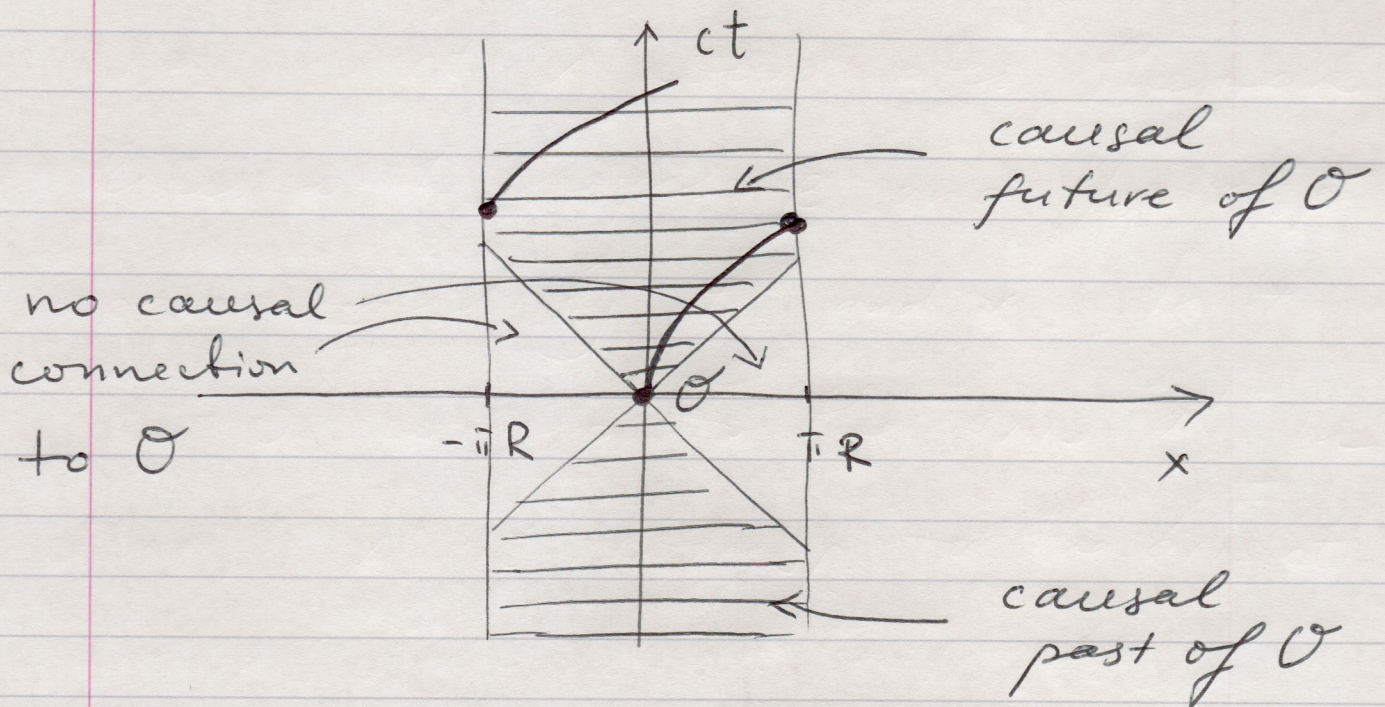 ct
causal
future of O
no causal
connection
to O
O
-πR
πR
x
causal
past of O